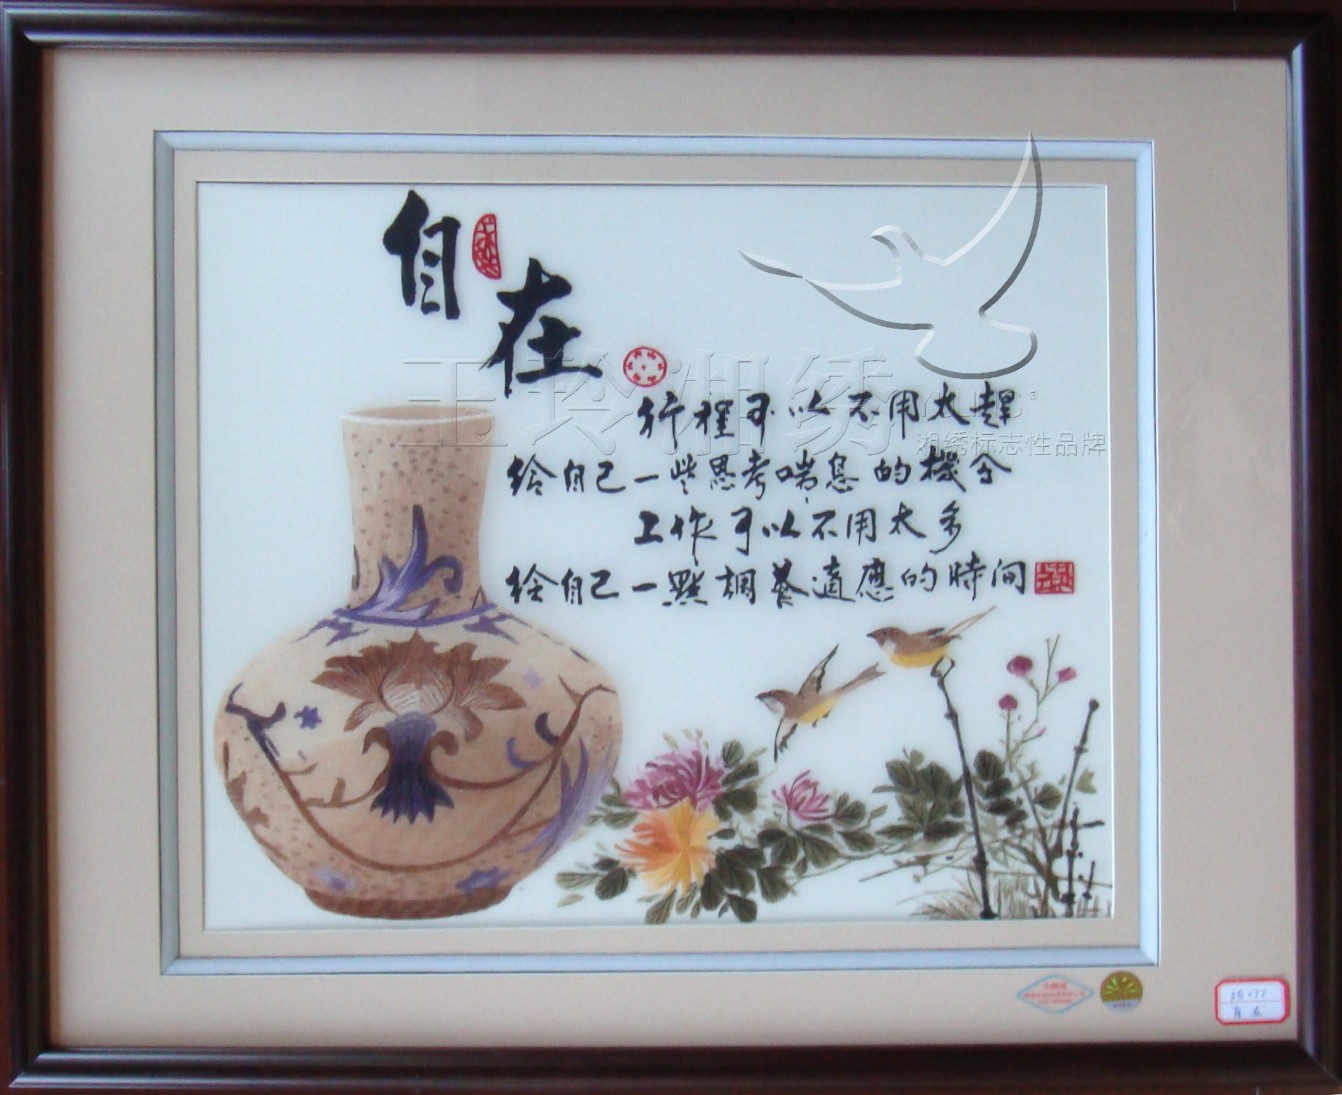 自在
行程可以不用太趕
給自己一些思考喘息的機会
工作可以不用太多
給自己一點調養適應的時间
玉玲湘绣
湘绣标志性品牌
自在